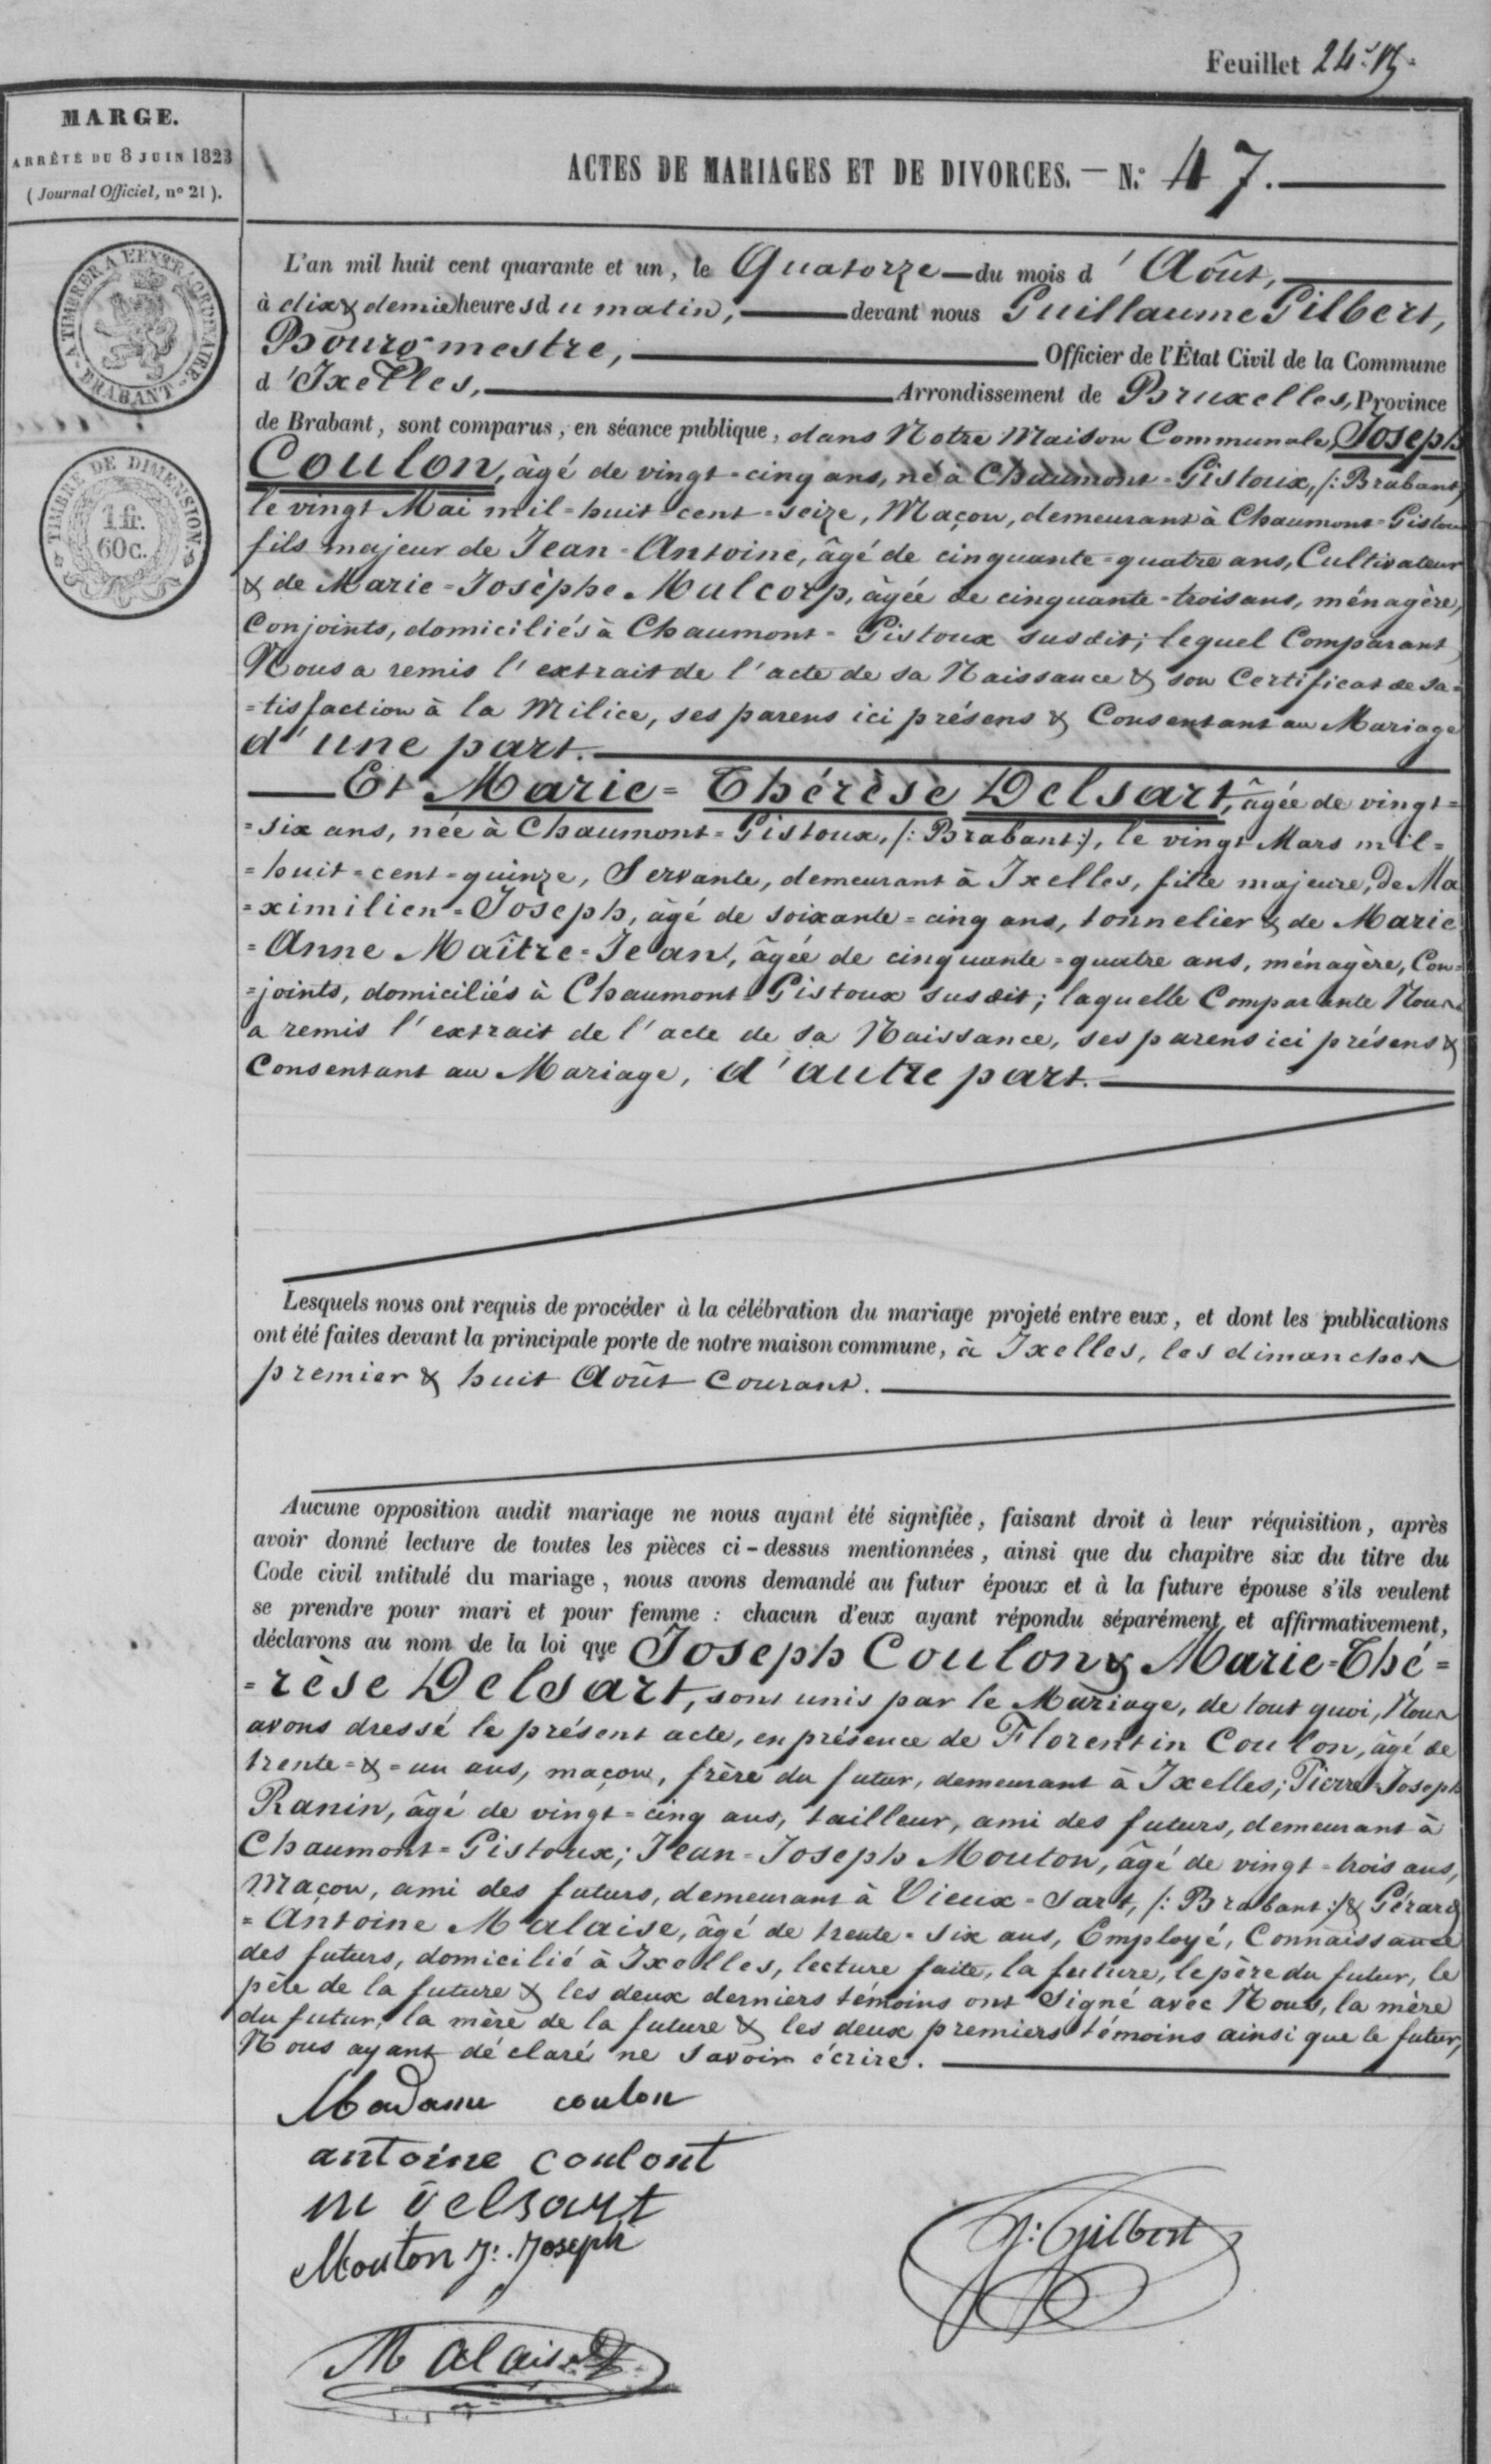 Feuillet 24.
MARGE.
ARRÊTÉ DU 8 JUIN 1823
( Journal Officiel, nº 21 ).
ACTES DE MARIAGES ET DE DIVORCES. — N.º 47.
A TIMBRER A L'EXTRAORDINAIRE
BRABANT
TIMBRE DE DIMENSION
1 fr.
60 c.
L'an mil huit cent quarante et un, le Quatorze du mois d'Août,
à dix & demie heures du matin, devant nous Guillaume Gilbert,
Bourgmestre, Officier de l'État Civil de la Commune
d'Ixelles, Arrondissement de Bruxelles, Province
de Brabant, sont comparus, en séance publique, dans Notre Maison Communale, Joseph
Coulon, âgé de vingt=cinq ans, né à Chaumont=Gistoux, /: Brabant
le vingt Mai mil=huit=cent=seize, Maçon, demeurant à Chaumont=Gistoux
fils majeur de Jean=Antoine, âgé de cinquante=quatre ans, Cultivateur
& de Marie=Josèphe Mulcorp, âgée de cinquante=trois ans, ménagère,
Conjoints, domiciliés à Chaumont=Gistoux susdit; lequel Comparant
Nous a remis l'extrait de l'acte de sa Naissance & son Certificat de sa=
=tisfaction à la Milice, ses parens ici présens & Consentant au Mariage
d'une part.
Et Marie=Thérèse Delsart, âgée de vingt=
=six ans, née à Chaumont=Gistoux, /: Brabant :/, le vingt Mars mil=
=huit=cent=quinze, Servante, demeurant à Ixelles, fille majeure, de Ma
=ximilien=Joseph, âgé de soixante=cinq ans, tonnelier & de Marie
=Anne Maître=Jean, âgée de cinquante=quatre ans, ménagère, Con=
=joints, domiciliés à Chaumont=Gistoux susdit; laquelle Comparante Nous
a remis l'extrait de l'acte de sa Naissance, ses parens ici présens &
Consentant au Mariage, d'autre part.
Lesquels nous ont requis de procéder à la célébration du mariage projeté entre eux, et dont les publications
ont été faites devant la principale porte de notre maison commune, à Ixelles, les dimanches
premier & huit Août Courant.
Aucune opposition audit mariage ne nous ayant été signifiée, faisant droit à leur réquisition, après
avoir donné lecture de toutes les pièces ci-dessus mentionnées, ainsi que du chapitre six du titre du
Code civil intitulé du mariage, nous avons demandé au futur époux et à la future épouse s'ils veulent
se prendre pour mari et pour femme : chacun d'eux ayant répondu séparément et affirmativement,
déclarons au nom de la loi que Joseph Coulon & Marie=Thé=
=rèse Delsart, sont unis par le Mariage, de tout quoi, Nous
avons dressé le présent acte, en présence de Florentin Coulon, âgé de
trente=&=un ans, maçon, frère du futur, demeurant à Ixelles; Pierre=Joseph
Ranin, âgé de vingt=cinq ans, tailleur, ami des futurs, demeurant à
Chaumont=Gistoux; Jean=Joseph Mouton, âgé de vingt=trois ans,
Maçon, ami des futurs, demeurant à Vieux=Sart, /: Brabant :/ & Gérard
=Antoine Malaise, âgé de trente=six ans, Employé, Connaissance
des futurs, domicilié à Ixelles, lecture faite, la future, le père du futur, le
père de la future & les deux derniers témoins ont Signé avec Nous, la mère
du futur, la mère de la future & les deux premiers témoins ainsi que le futur,
Nous ayant déclaré ne savoir écrire.
Madame coulon
antoine coulont
m delsart
Mouton J: Joseph
G: Gilbert
Malaise